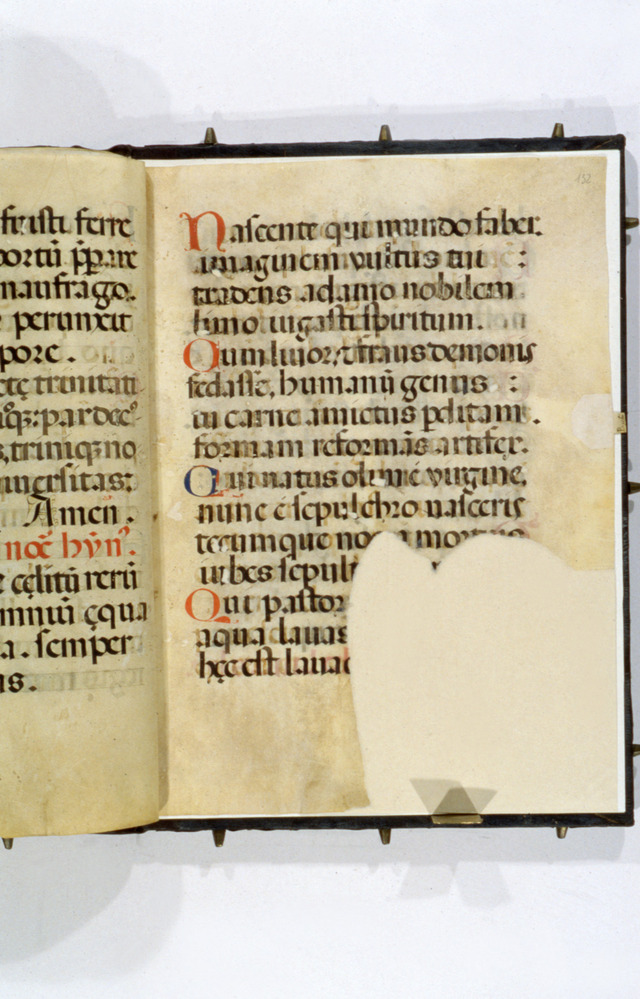 fristi ferre
portū ꝑpare
naufrago.
perunxit
pore.
trinitati
par dec⁹
,triniqꝫ no
uersitas:
Amen.
noc̄ hȳn⁹.
cęlitū rerū
mniū ęqua
a. semper
is.
132
Nascente qui mundo faber.
imaginem uultus tui :
tradens adamo nobilem
limo iugasti spiritum.
Qum liuor, & fraus demonis
fedasse, humanū genus :
tu carne amictus ꝑditam.
formam reformās artifex.
Qui natus olim é uirgine,
nunc e sepulchro nasceris
tecumque nos a mortuis
iubes sepult
Qui pastor
aqua lauas
hęc est lauac